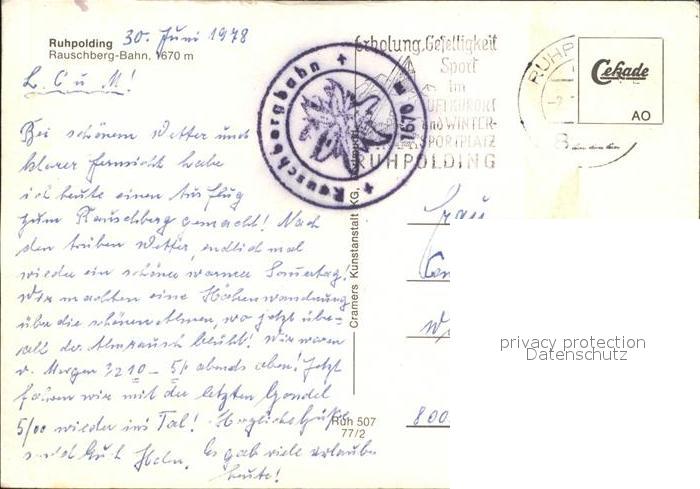 Ruhpolding 30. Juni 1978
Rauschberg-Bahn, 1670 m
L. C u M!
Bei schönem Wetter und
klarer Fernsicht habe
ich heute einen Ausflug
zum Rauschberg gemacht! Nach
den trüben Wetter, endlich mal
wieder ein schöner warmer Sonnentag!
Wir machten eine Höhenwanderung
über die schönen Almen, wo jetzt übe-
all der Almrausch blüht! Wir waren
v. Morgen 10 – 5h abends oben! Jetzt
fahren wir mit der letzten Gondel
5/00 wieder ins Tal! Herzliche Grüße
Euch Es gab viele Urlauber
heute!
Rauschbergbahn + 1670 m +
Erholung, Geselligkeit
Sport
im
LUFTKURORT
und WINTER-
SPORTPLATZ
RUHPOLDING
RUHP
8
Cekade
AO
Cramers Kunstanstalt KG,
Ruh 507
77/2
Frau
800
privacy protection
Datenschutz